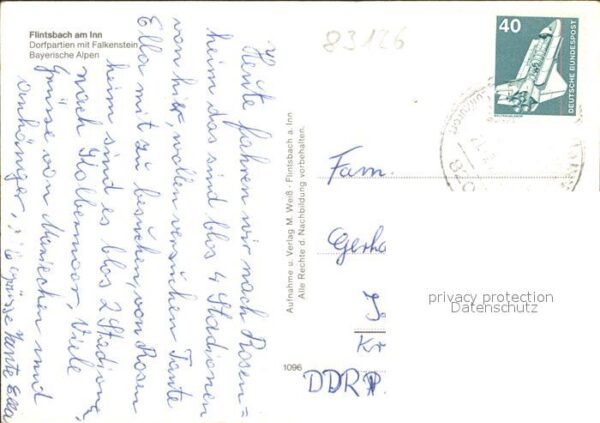 Flintsbach am Inn
Dorfpartien mit Falkenstein
Bayerische Alpen
83126
40
DEUTSCHE BUNDESPOST
Heute fahren wir nach Rosen=
heim das sind blos 4 Stadionen
von hir, wollen versuchen Tante
Ella mit zu besuchen, von Rosen
heim sind es blos 2 Stadione,
nach Kolbermoor, Viele
Grüsse von Muniechen und
Anhänger,
Grüsse Tante Ella
Aufnahme u. Verlag M. Weiß · Flintsbach a. Inn
Alle Rechte d. Nachbildung vorbehalten.
1096
Fam.
Gerha
Kr
DDR
privacy protection
Datenschutz